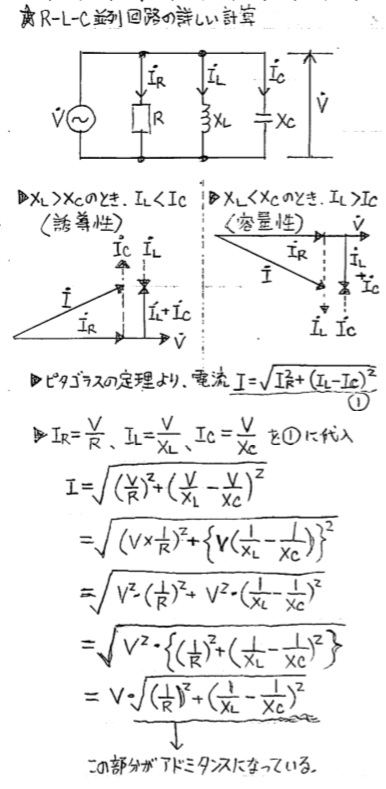 ☆R-L-C並列回路の詳しい計算
V̇ İR R İL XL İC XC V̇
▷XL>XCのとき、IL<IC
(誘導性)
İC İL
İ
İR İL+İC
V̇
▷XL<XCのとき、IL>IC
(容量性) V̇
İR İL+İC
İ
İL İC
▷ピタゴラスの定理より、電流 I=√(IR²+(IL-IC)²)
①
▷IR=V/R、IL=V/XL、IC=V/XC を①に代入
I=√((V/R)²+(V/XL-V/XC)²)
=√((V×1/R)²+{V(1/XL-1/XC)}²)
=√(V²・(1/R)²+V²・(1/XL-1/XC)²)
=√(V²・{(1/R)²+(1/XL-1/XC)²})
=V・√((1/R)²+(1/XL-1/XC)²)
この部分がアドミタンスになっている。